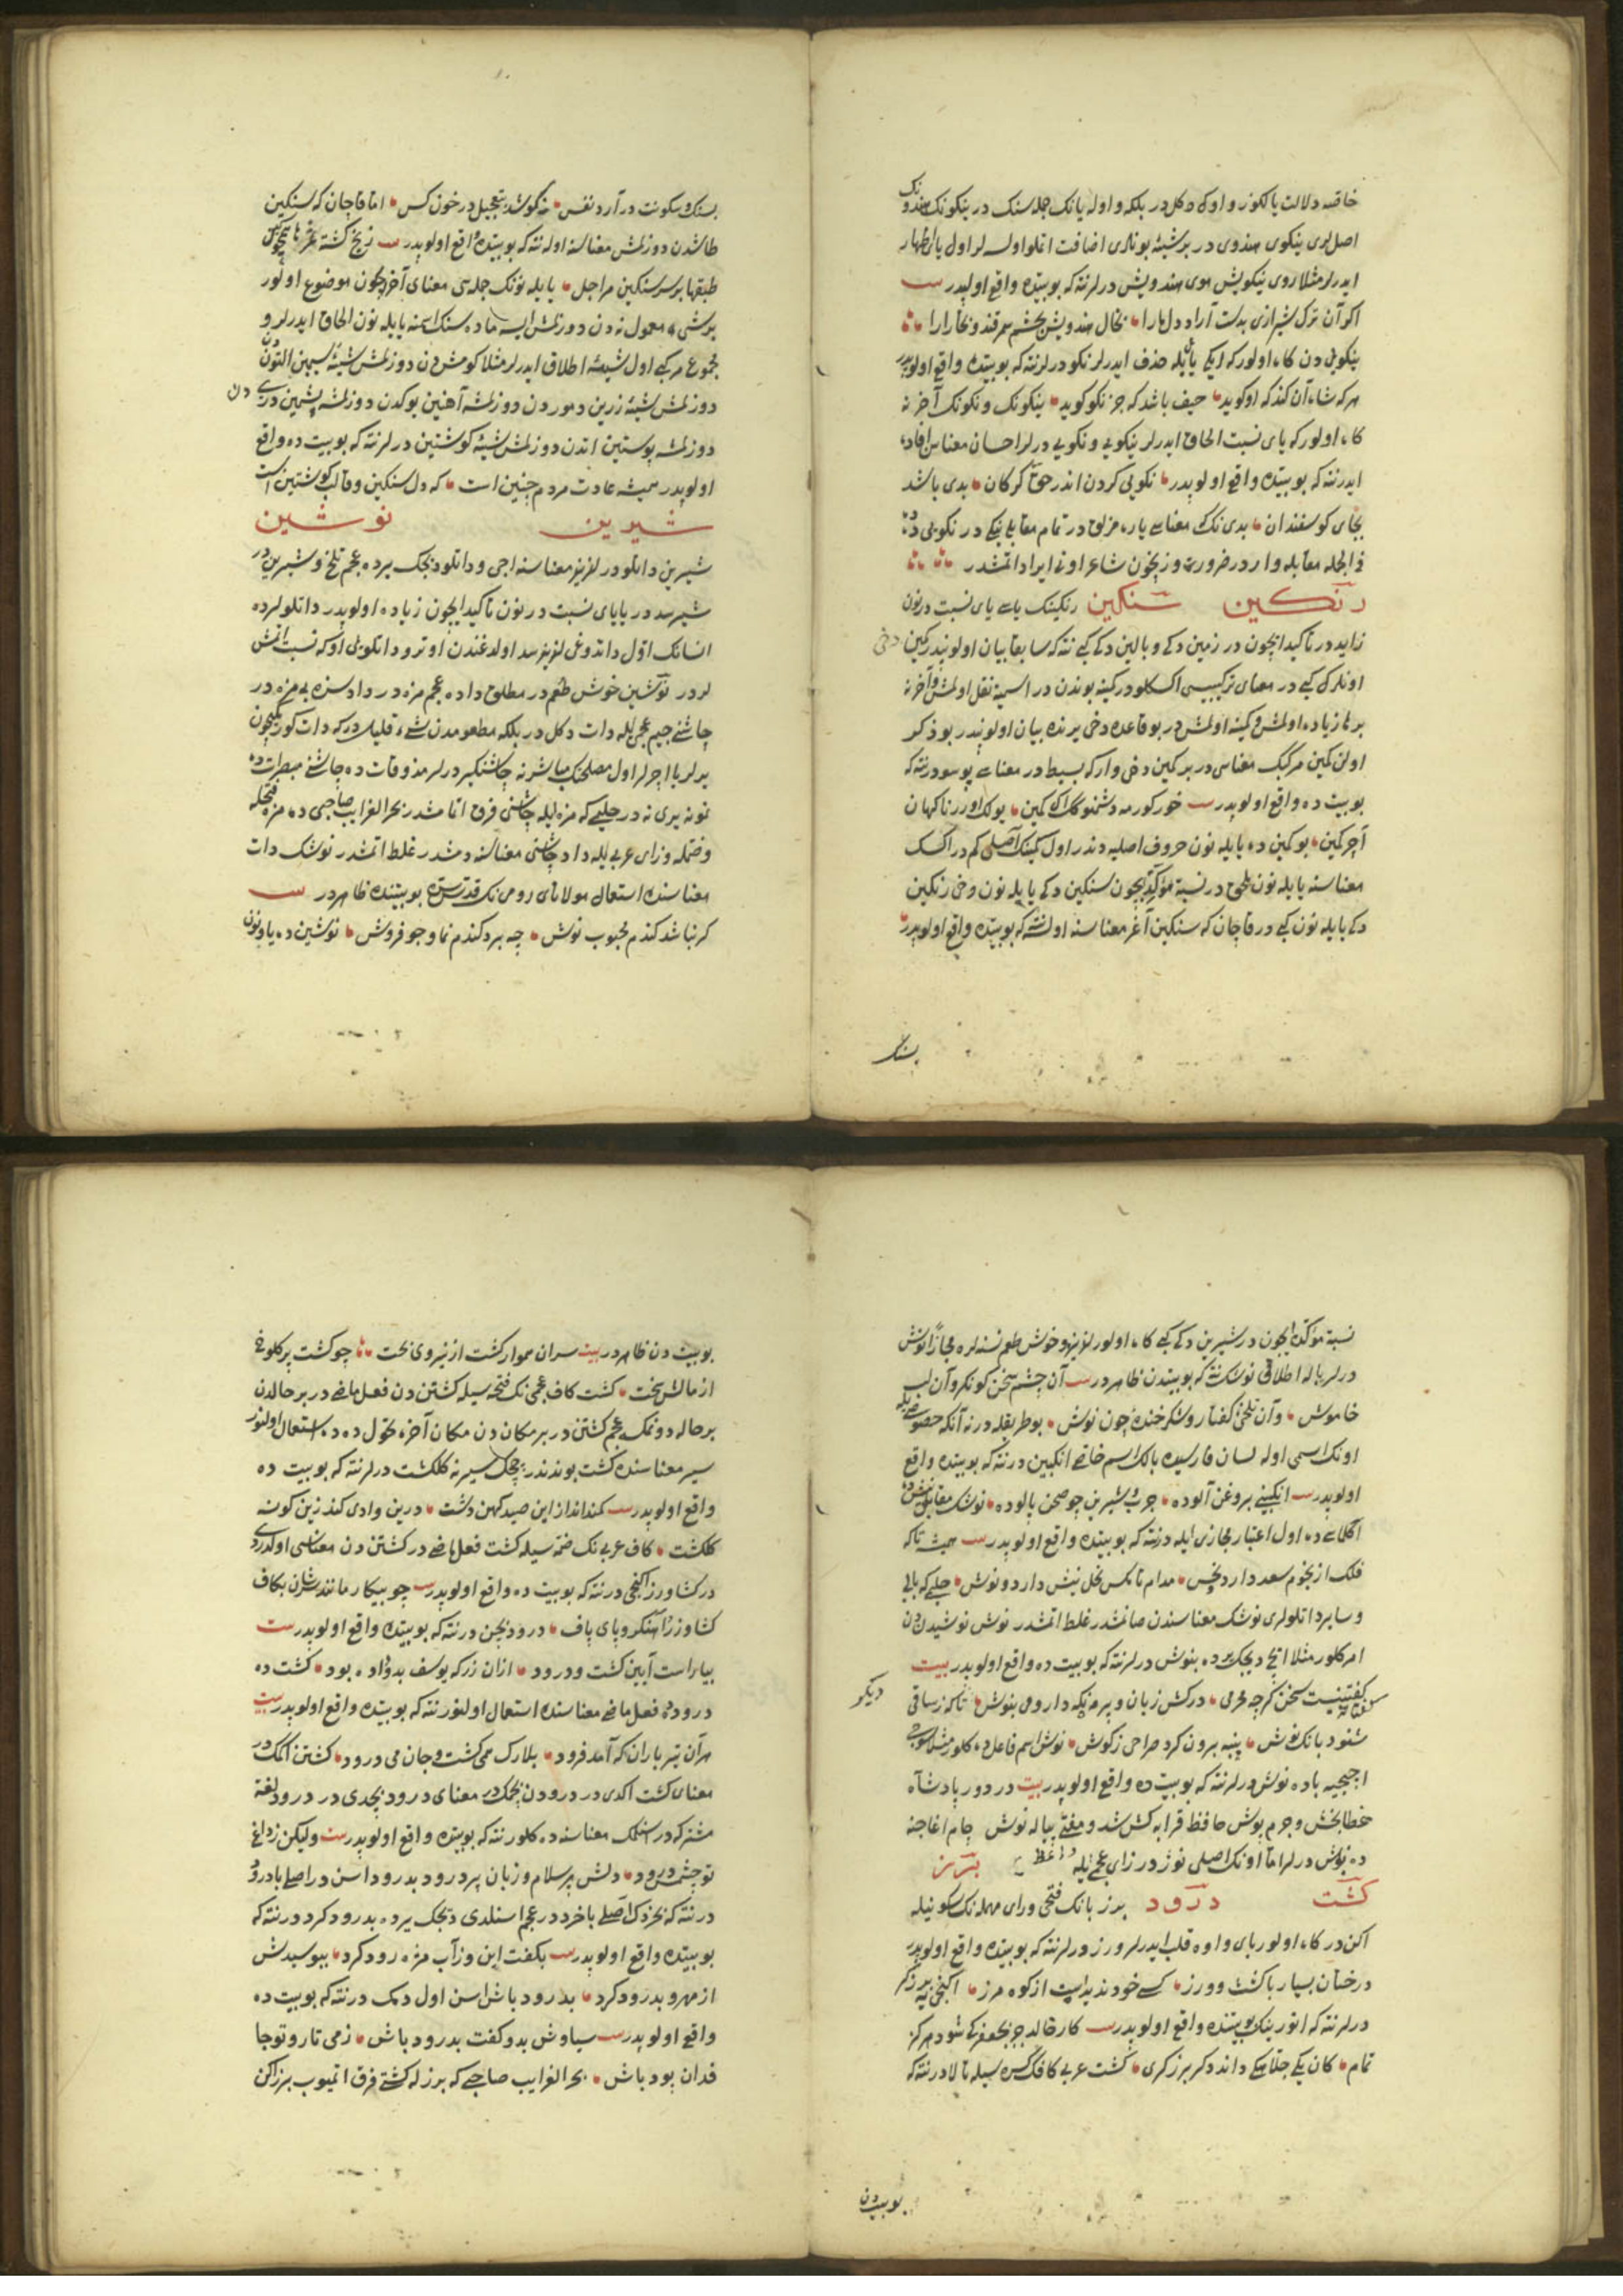 خاصه دلالت یالکوز واوکی دکل در بلکه واوله یانک جله سنک در ینکونک هندونک
اصللری ینکوی هندوی در برشیئه بونلری اضافت اتملو اولسه لر اول یای اظهار
ایدرلر مثلا روی نیکویش موی هندویش درلر نته که بو بیتده واقع اولیدر ست
اکر آن ترک شیرازی بدست آرد دل مارا بخال هندویش بخشم سمرقند و بخارارا
ینکویی دن کاه اولور که ایکی یائی بله حذف ایدرلر نکو درلر نته که بو بیتده واقع اولوبدر
هر که شاه آن کند که او کوید حیف باشد که جز نکو کوید ینکونک و نکونک آخرنه
کاه اولور که یای نسبت الحاق ایدرلر نیکویی و نکویی درلر احسان معناسن افاده
ایدر نته که بو بیتده واقع اولوبدر نکویی کردن اندر حق کرکان بدی باشد
بجای کوسفندان بدی نک معناسی یارمزلق در تمام مقابلی نیکی در نکویی ده
فی الجمله مقابله وار در ضرورت وزنیچون شاعر اونی ایراد اتمشدر
رنکین سنکین رنکینک یاسی یای نسبت در نون
زاید در تاکید ایچون در زمین دکی و بالین دکی کبی نته که سابقا بیان اولوندی در کمین دخی
اونلر کبی در معنای ترکیبیسی اکسکلو در کینه بوندن در اسمیته نقل اولمش و آخرنه
بر ها زیاده اولمش کمینه اولمش در بو قاعده دخی یرنده بیان اولوندی در بو ذکر
اولن کمین مرکبک معناسی در بر کمین دخی وار که بسیط در معناسی پوسو در نته که
بو بیت ده واقع اولوبدر ست خور کورمه دشمنوکی اک کمین یولک اورر ناکهان
آچر کمین بو کمین ده یایله نون حروف اصلیه دندر اول کمینک اصلی کم در اکسک
معناسنه یایله نون ملحق در نسبة مؤکده ایچون سنکین دکی یایله نون دخی رنکین
دکی یایله نون کبی در قاچان که سنکین آغر معناسنه اوله نته که بو بیتده واقع اولوبدر
بسنک
بسنک و سکونت در آرد نفس نه کوشد بتعجیل در خون کس اما قاچان که سنکین
طاشدن دوزلمش معناسنه اوله نته که بو بیتده واقع اولوبدر ست
طبقها بر سر سنکین مراجل یایله نونک جله سی معنای آخر ایچون موضوع اولور
برشی که معمول نه دن دوزلمش ایسه ماده سنک اسمنه یایله نون الحاق ایدرلر و
مجموع مرکبی اول شیئه اطلاق ایدرلر مثلا کومش دن دوزلمش شیئه سیمین التون دن
دوزلمش شیئه زرین دمور دن دوزلمشه آهنین یوکدن دوزلمشه پشمین دریدن
دوزلمشه پوستین اتدن دوزلمش شیئه کوشتین درلر نته که بو بیت ده واقع
اولوبدر همیشه عادت مردم چنین است که دل سنکین و قالب کوشتین است
شیرین نوشین
شیرین داتلو در لذیذ معناسنه اجی و داتلو دیجک یرده عجم تلخ و شیرین در
شیر سد در یایای نسبت در نون تاکید ایچون زیاده اولوبدر داتلولرده
انسانک اول داتدوغی لذیذ سد اولدغندن اوترو داتلویی اوکا نسبت اتمش
لردر نوشین خوش طعم در مطلق داده عجم مزه در دادسزه بی مزه در
چاشنی جیم عجمی ایله دات دکل در بلکه مطعومدن شیء قلیل در که دات کورمکیچون
یرلر یا اچرلر اول مصلحتک مباشرنه چاشنیکیر درلر مذوقات ده چاشنی مبصرات ده
نمونه یری نه در حلیمی که مزه ایله چاشنی فرق اتمامشدر بحر الغرایب صاحبی ده مزه فتحله
و ضمله وزای عربی ایله داد چاشنی معناسنه دمشدر غلط اتمشدر نوشک دات
معناسنده استعمالی مولانای رومی نک قدس سره بو بیتنده ظاهر در ست
کر نباشد کندم محبوب نوش چه برد کندم نما و جو فروش نوشین ده یا و نون
نسبة مؤکده ایچون در شیرین دکی کبی کاه اولور لذیذ و خوش طعم نسنه لره مجازا نوش
درلر باله اطلاقی نوشک نته که بو بیتدن ظاهر در ست آن چشم سخن کو نکر و آن لب
خاموش وآن تلخی کفتار و شکر خنده چون نوش بو طریقله در نه آنکه خصوصیله
اونک اسمی اوله لسان فارسیده بالک اسم خاصی انکبین در نته که بو بیتده واقع
اولوبدر ست انکبینی بروغن آلوده چرب و شیرین چو صحن پالوده نوشک مقابلی نیش در
اکلمسی ده اول اعتبار مجازی ایله در نته که بو بیتده واقع اولوبدر ست همیشه تا که
فلک از نجوم سعد دارد و نحس مدام تا مکس نحل نیش دارد و نوش حلیمی که بالی
و سایر داتلولری نوشک معناسندن صانمشدر غلط اتمشدر نوش نوشیدن دن
امر کلور مثلا ایچ دیجک یرده بنوش درلر نته که بو بیت ده واقع اولوبدر بیت
کفتنیست سخن کرچه محرمی درکش زبان و پرده نکه دار و می بنوش تا که ز ساقی دیکر
شنود بانک نوش پنبه برون کرد صراحی ز کوش نوش اسم فاعل ده کلور مثلا سوجی
ایچیجیه باده نوش درلر نته که بو بیت ده واقع اولوبدر بیت در دور پادشاه
خطا بخش و جرم پوش حافظ قرابه کش شد و مفتی پیاله نوش چام اغاجنه
ده نوش درلر اما اونک اصلی نوژ در زای عجمی ایله برز
کشت درود برز بانک فتحی و رای مهمله نک سکونیله
اکن در کاه اولور بای واوه قلب ایدرلر ورز درلر نته که بو بیتده واقع اولوبدر
درختان بسیار با کشت و ورز کسی خود ندیدست از کوه مرز اکنجی یه برزکر
درلر نته که انورینک بو بیتنده واقع اولوبدر ست کار خالد جز بجعفر کی شود هرکز
تمام کان یکی جلاهکی داند دکر برزکری کشت عربی کافک کسره سیله تارلا در نته که
بو بیتدن
بو بیت دن ظاهر در بیت سران هموار کشت از نیروی بخت چو کشت پر کلوخ
از مالش سخت کشت کاف عجمی نک فتحه سیله کشتن دن فعل ماضی در بر حالدن
بر حاله دونمک عجم کشتن در بر مکان دن مکان آخره تحول ده ده استعمال اولنور
سیر معناسنده کشت بوندندر چیچک سیرنه کلکشت درلر نته که بو بیت ده
واقع اولوبدر ست کمند انداز این صید کهن دشت درین وادی کند زین کونه
کلکشت کاف عربی نک ضمه سیله کشت فعل ماضی در کشتن دن معناسی اولدردی
در کشاورز اکنجی در نته که بو بیت ده واقع اولوبدر ست چو بیکار مانند شان بکاف
کشاورز و آهنکر و پای باف درود بجن در نته که بو بیتده واقع اولوبدر ست
بیاراست آیین کشت و درود ازان زر که یوسف بدو داده بود کشت ده
درود ده فعل ماضی معناسنده استعمال اولنور نته که بو بیتده واقع اولوبدر بیت
هر آن تیر باران که آمد فرود بلارک همی کشت و جان می درود کشتن اکمک در
معنای کشت اکدی در درودن بچمک در معنای درود بچدی در درود لفظی
مشترک در اسنلک معناسنه ده کلور نته که بو بیتده واقع اولوبدر ست ولیکن ز داغ
تو چشمش درود دلش پر سلام و زبان پر درود بدرود اسن در اصلی با درود
در نته که بخردک اصلی با خرد در عجم اسنلدی دیجک یرده بدرود کرد در نته که
بو بیتده واقع اولوبدر ست بکفت این و ز آب مژه رود کرد ببوسیدش
از مهر و بدرود کرد بدرود باش اسن اول دمک در نته که بو بیت ده
واقع اولوبدر ست سیاوش بدو کفت بدرود باش زمی تار و تو جا
قدان پود باش بحر الغرایب صاحبی که برز له کشتی فرق اتمیوب برز اکن